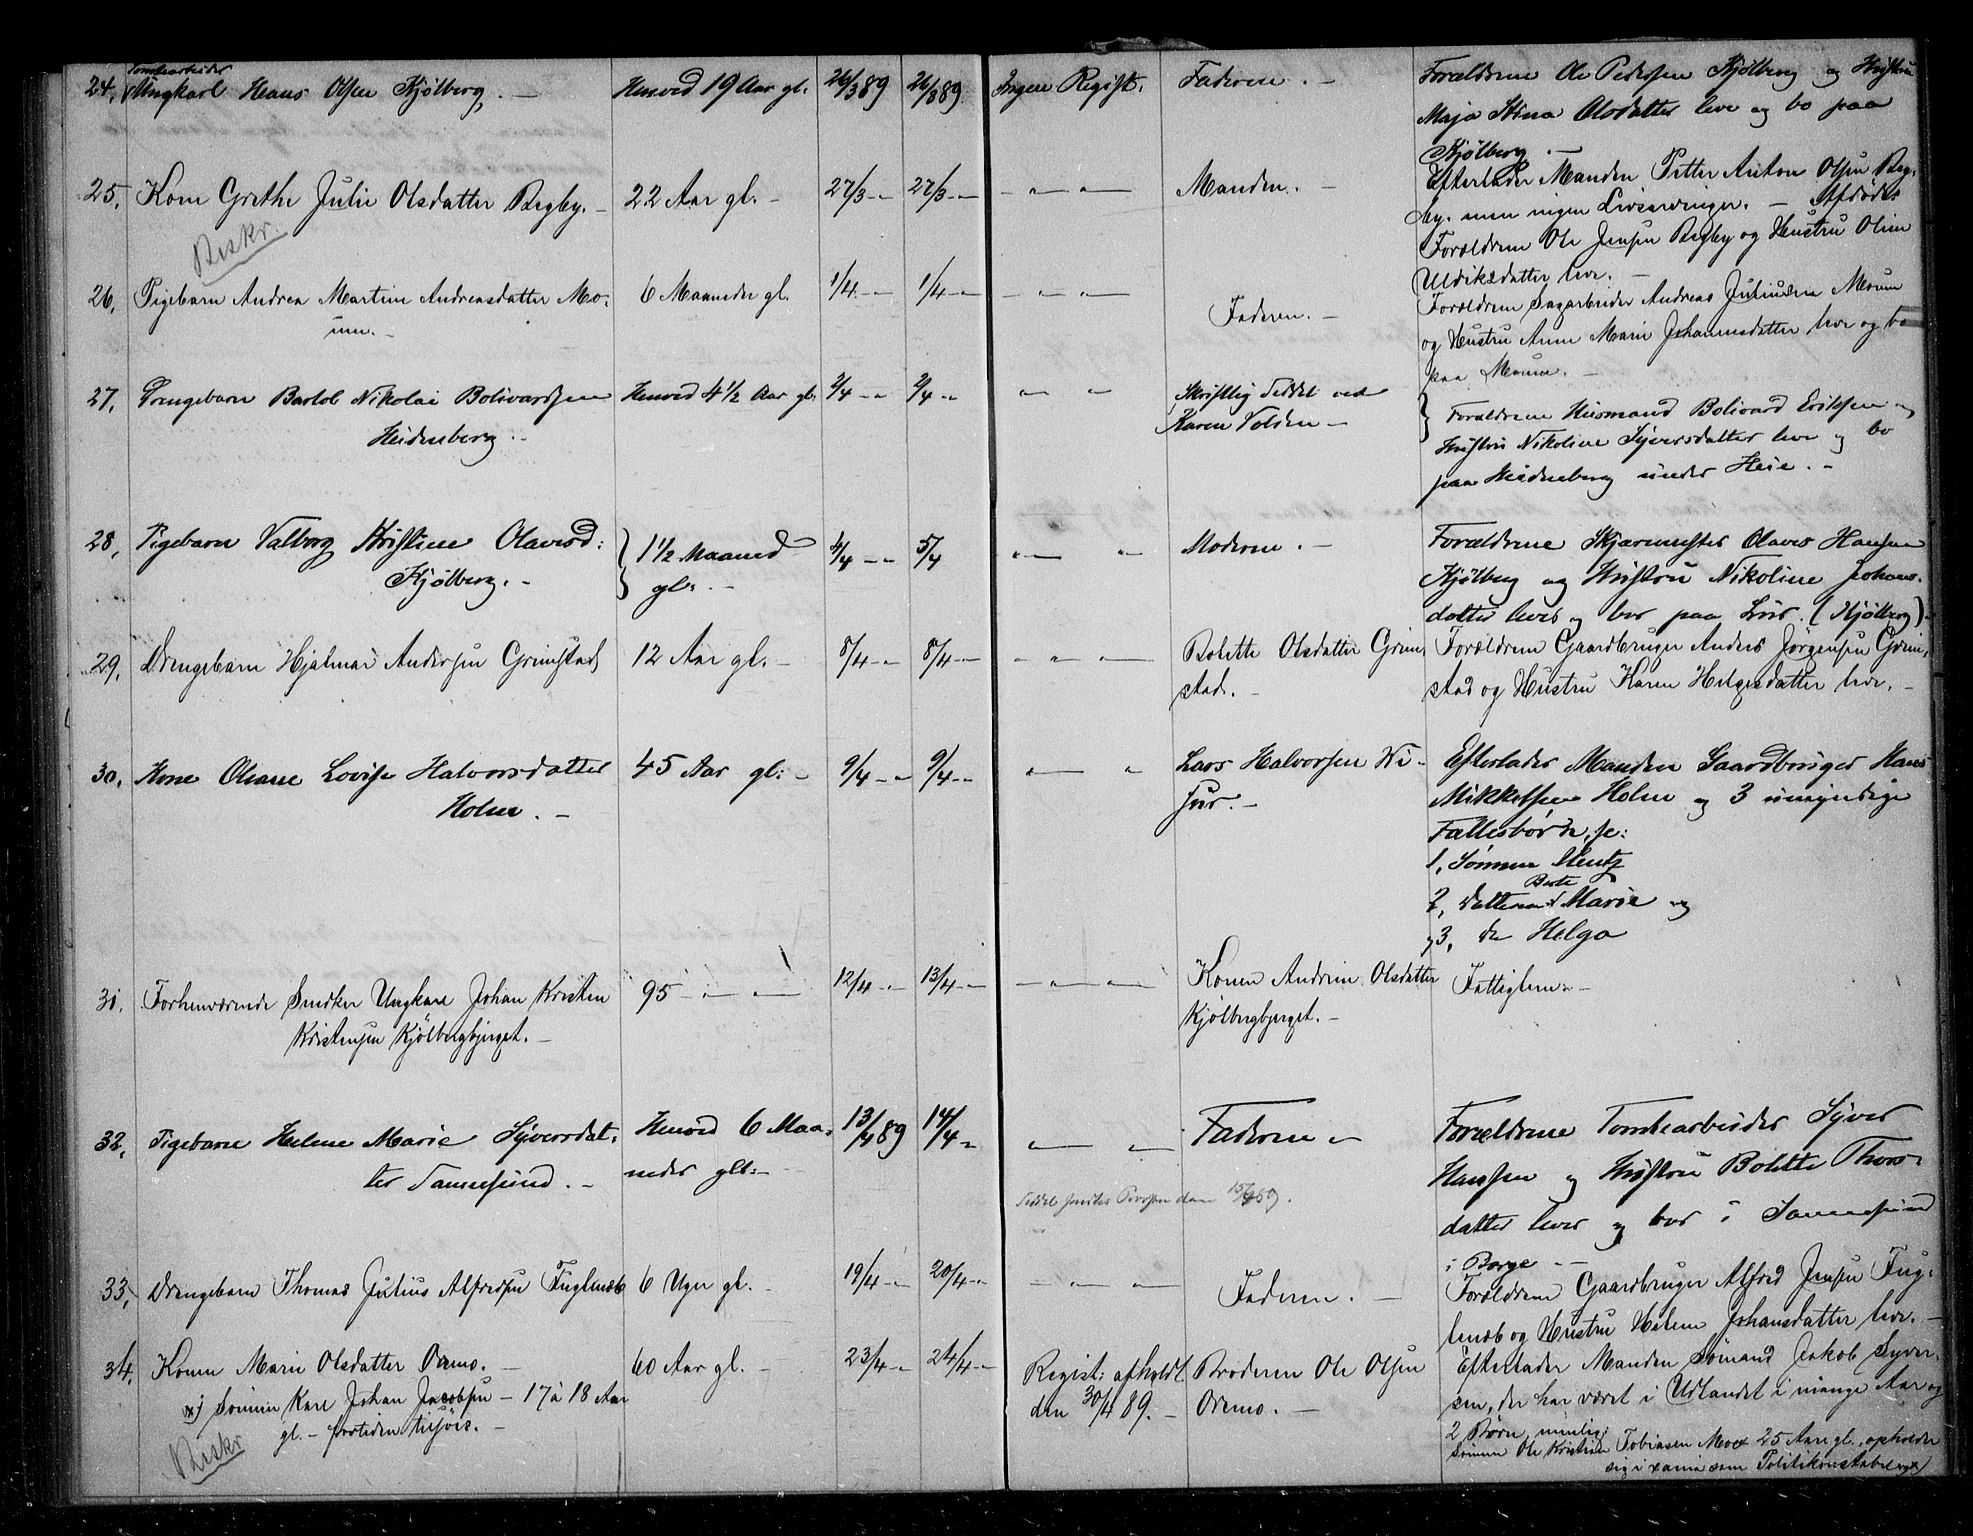 Tomtearbeider
24, Ungkarl Hans Olsen Kjølberg. — Henved 19 Aar gl. 26/3 89 26/3 89 Ingen Regist. Faderen. — Forældrene Ole Pedersen Kjølberg og Hustru
Maja Stina Olsdatter leve og bo paa
Kjølberg. —
25, Kone Grethe Julie Olsdatter Begby. — 22 Aar gl. — 27/3 -"- 27/3 -"- — " — " — Manden. — Efterlader Manden Petter Anton Olsen Beg-
by. men ingen Livsarvinger. — Afdødes
Forældrene Ole Jensen Begby og Hustru Oline
Uldriksdatter leve. —
Beskr.
26, Pigebarn Andrea Martine Andreasdatter Mo- 6 Maaneder gl. 1/4 -"- 1/4 -"- — " — " — Faderen. — Forældrene Sagarbeider Andreas Juliussen Moum
um. — og Hustru Anne Marie Johannesdatter leve og bo
paa Moum. —
27, Drengebarn Bartol Nikolai Bolivardsen Henved 4 1/2 Aar gl. 2/4 -"- 2/4 -"- " — " Skriftlig Seddel ved Forældrene Husmand Bolivard Eriksen og
Heidenberg. — Karen Volden — Hustru Nikoline Syversdatter leve og bo
paa Heidenberg under Heie. —
28, Pigebarn Valborg Kristine Olavesd: 1 1/2 Maaned 4/4 -"- 5/4 " — " Moderen. — Forældrene Skjærmester Olaves Hansen
Kjølberg. — gl. — Kjølberg og Hustru Nikoline Johans-
datter lever og bor paa Lur. (Kjølberg) —
29, Drengebarn Hjalmar Andersen Grimstad, 12 Aar gl. — 8/4 -"- 8/4 -"- — " — " — Bolette Olsdatter Grim- Forældrene Gaardbruger Anders Jørgensen Grim-
stad. — stad og Hustru Karen Helgesdatter leve. —
30, Kone Oliane Lovise Halvorsdatter 45 Aar gl: — 9/4 -"- 9/4 -"- " — " Lars Halvorsen Wi- Efterlader Manden Gaardbruger Hans
Holm. — Mikkelsen Holm og 3 umyndige
Fællesbørn, se:
1, Sønnen Mentz
Berte
2, Datteren Marie og
3, do Helga
31, Forhenværende Smeker Ungkarl Johan Kristen 95 — " — " 12/4 -"- 13/4 -"- — " — " — Konen Andrine Olsdatter Fattiglem. —
Kristensen Kjølbergbjerget. — Kjølbergbjerget. —
32, Pigebarn Helene Marie Syversdat- Henved 6 Maa- 13/4 89 14/4 -"- " — " Faderen — Forældrene Tomtearbeider Syver
ter Sannesund. — neder gl: — Hansen og Hustru Bolette Thors-
Seddel sendtes Provsten den 15/4 89. datter lever og bor i Sannesund
i Borge —
33, Drengebarn Thomas Julius Alfredsen Fuglenæb 6 Uger gl. — 19/4 -"- 20/4 -"- — " — " — Faderen. — Forældrene Gaardbruger Alfred Jensen Fug-
lenæb og Hustru Helene Johansdatter leve. —
34, Konen Marie Olsdatter Oremo. — 60 Aar gl. — 23/4 -"- 24/4 -"- Regist: afholdt Broderen Ole Olsen Efterlader Manden Sømand Jakob Syver-
x) Sønnen Karl Johan Jacobsen — 17 à 18 Aar den 30/4 89. — Oremo. — sen, der har været i Udlandet i mange Aar og
gl. — fortiden tilsjøs. — 2 Børn, nemlig:
Sønnen Ole Kristian Tobiasen Moe 25 Aar gl. opholder
Beskr. sig i xania som Politikonstabel og x)